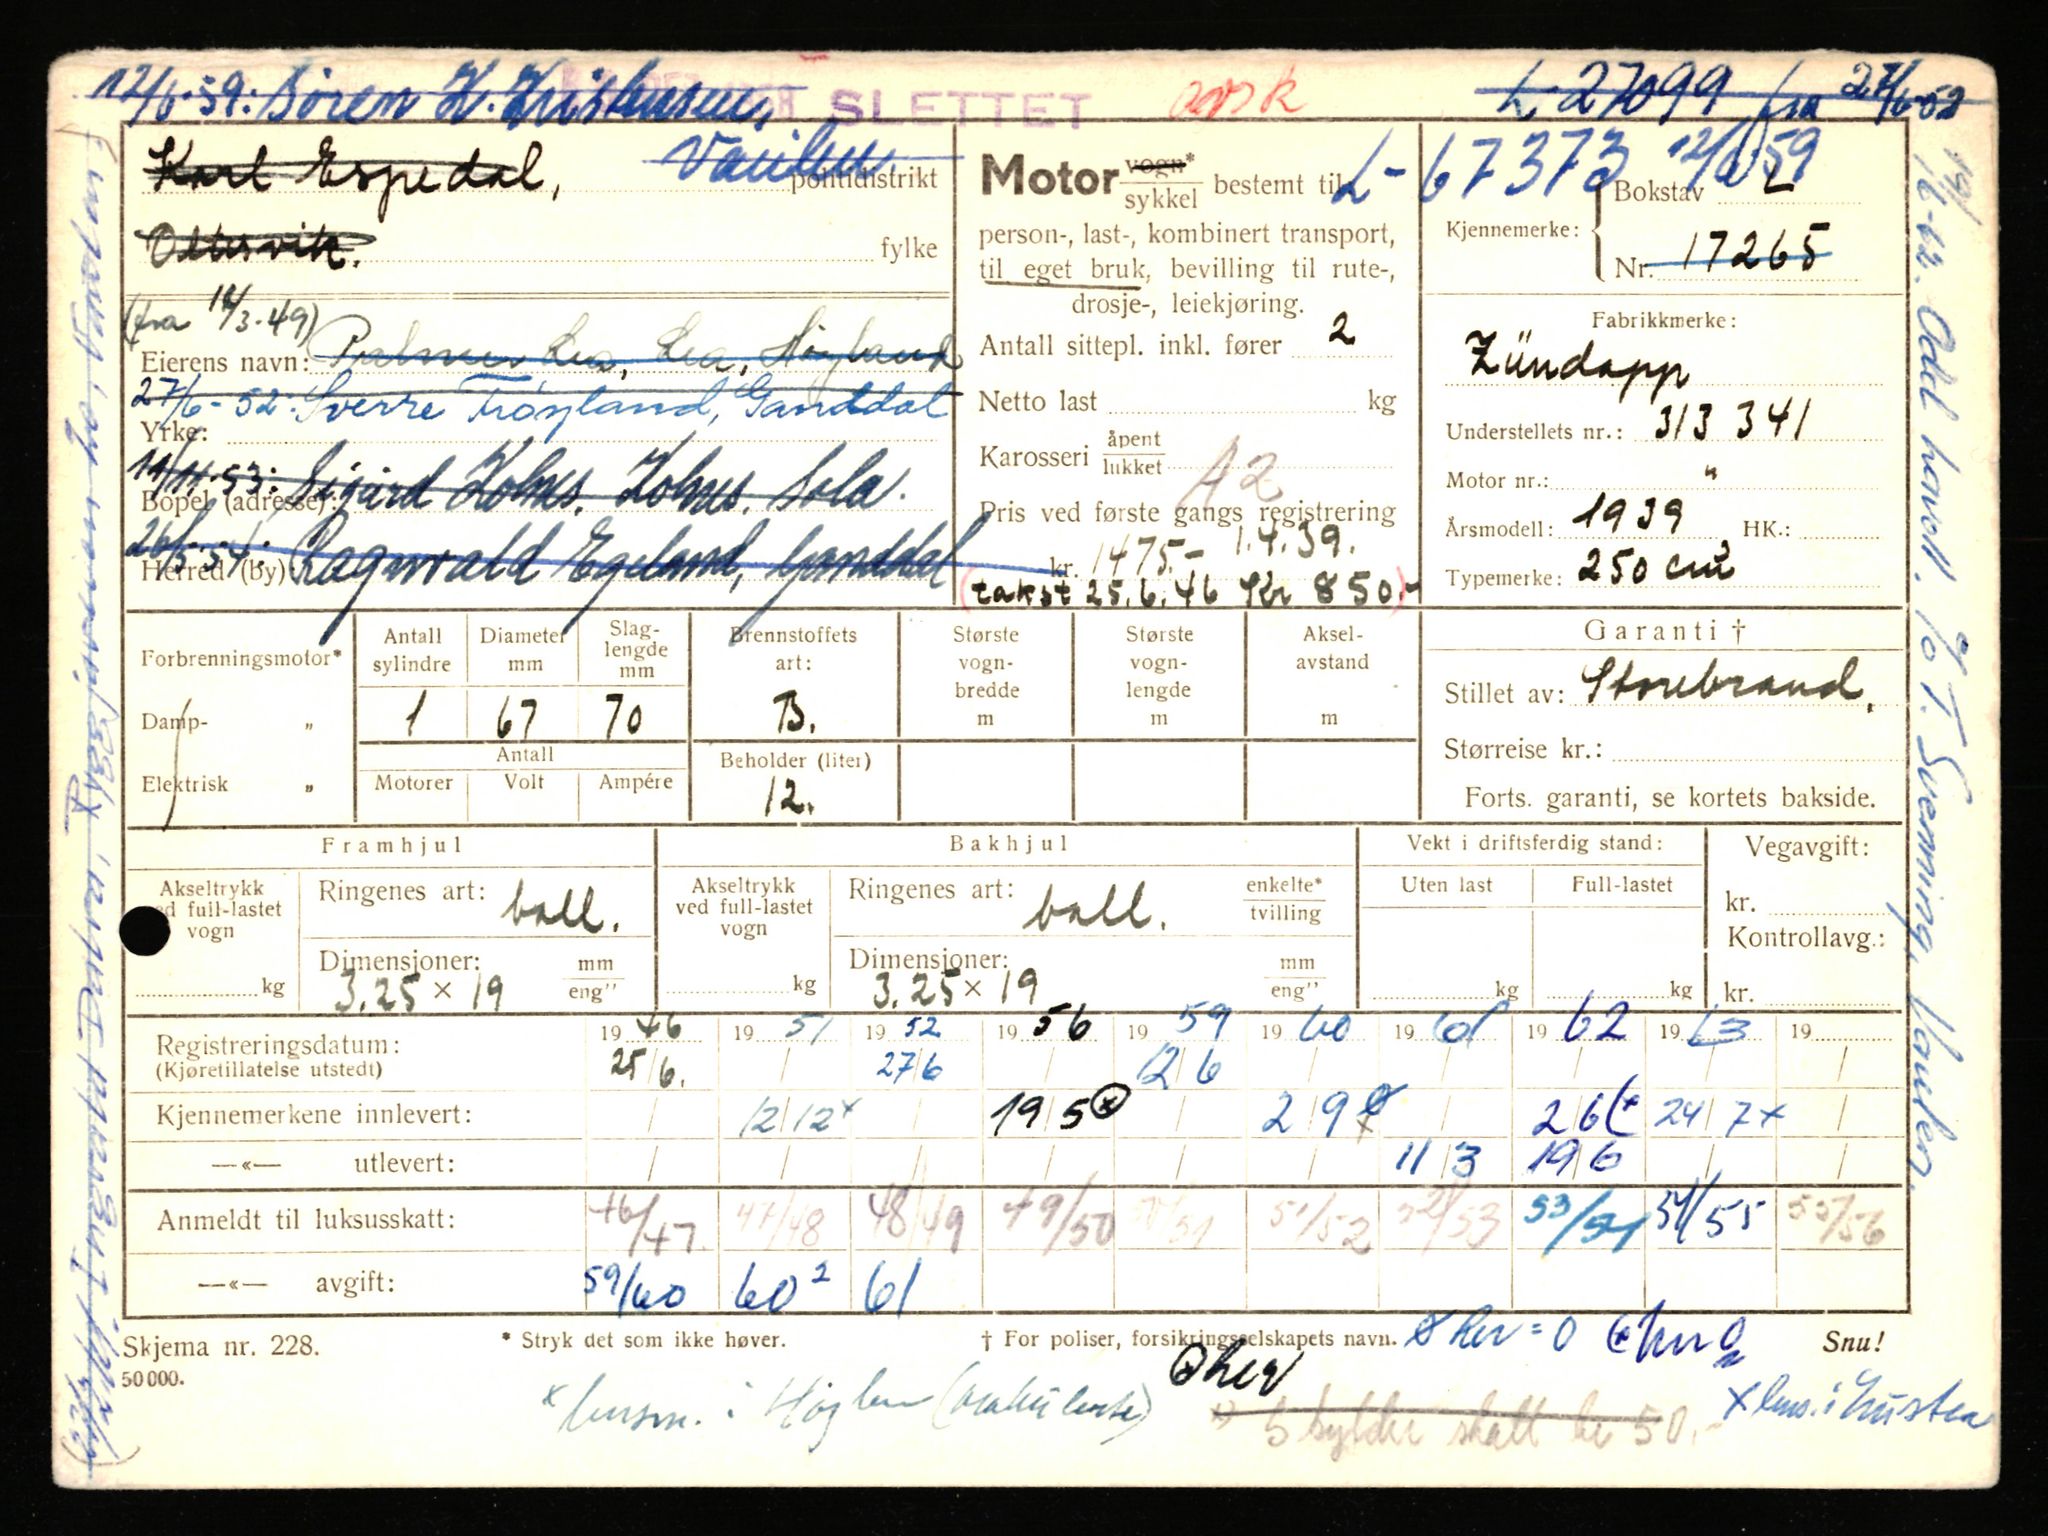 12/6-59: Søren K. Kristensen,
SLETTET
avsk
L-27099 fra 27/6-52
Vaulen
Karl Espedal,
politidistrikt
Oltesvik.
fylke
(fra 14/3-49)
Eierens navn: Palmer Lea, Lea, Høyland
27/6-52: Sverre Frøyland, Ganddal
Yrke:
11/11-53: Sigurd Kolnes, Kolnes, Sola.
Bopel (adresse):
26/5-54: Ragnvald Egeland, Ganddal
Herred (by)
Motor vogn* sykkel bestemt til
person-, last-, kombinert transport,
til eget bruk, bevilling til rute-,
drosje-, leiekjøring.
Antall sittepl. inkl. fører 2
Netto last kg
Karosseri åpent lukket
A2
Pris ved første gangs registrering
kr. 1475.- 1.4.39.
(takst 25.6.46 Kr 850.-)
L-67373 12/6 59
Kjennemerke: Bokstav L
Nr. 17265
Fabrikkmerke:
Zündapp
Understellets nr.: 313 341
Motor nr.: "
Årsmodell: 1939 HK.:
Typemerke: 250 cm³
Forbrenningsmotor*
Damp- „
Elektrisk „
Antall sylindre 1
Diameter mm 67
Slaglengde mm 70
Antall
Motorer Volt Ampére
Brennstoffets art: B.
Beholder (liter) 12.
Største vognbredde m
Største vognlengde m
Akselavstand m
Garanti †
Stillet av: Storebrand,
Størreise kr.:
Forts. garanti, se kortets bakside.
Framhjul
Akseltrykk ved full-lastet vogn kg
Ringenes art: ball.
Dimensjoner: mm eng"
3.25 × 19
Bakhjul
Akseltrykk ved full-lastet vogn kg
Ringenes art: ball. enkelte* tvilling
Dimensjoner: mm eng"
3.25 × 19
Vekt i driftsferdig stand:
Uten last Full-lastet
kg kg
Vegavgift:
kr.
Kontrollavg.:
kr.
1946 1951 1952 1956 1959 1960 1961 1962 1963 19
Registreringsdatum:
(Kjøretillatelse utstedt)
25/6. 27/6 12/6
Kjennemerkene innlevert: 12/12× 19/5 2/9 2/6 24/7×
—«— utlevert: 11/3 19/6
Anmeldt til luksusskatt: 46/47. 47/48 48/49 49/50 50/51 51/52 52/53 53/54 54/55 55/56
—«— avgift: 59/60 60² 61
Skjema nr. 228.
50000.
* Stryk det som ikke høver.
† For poliser, forsikringsselskapets navn.
Snu!
skatt kr 50.-
19/6-62. Odd Lavoll. % T. Svenning, Vaulen.